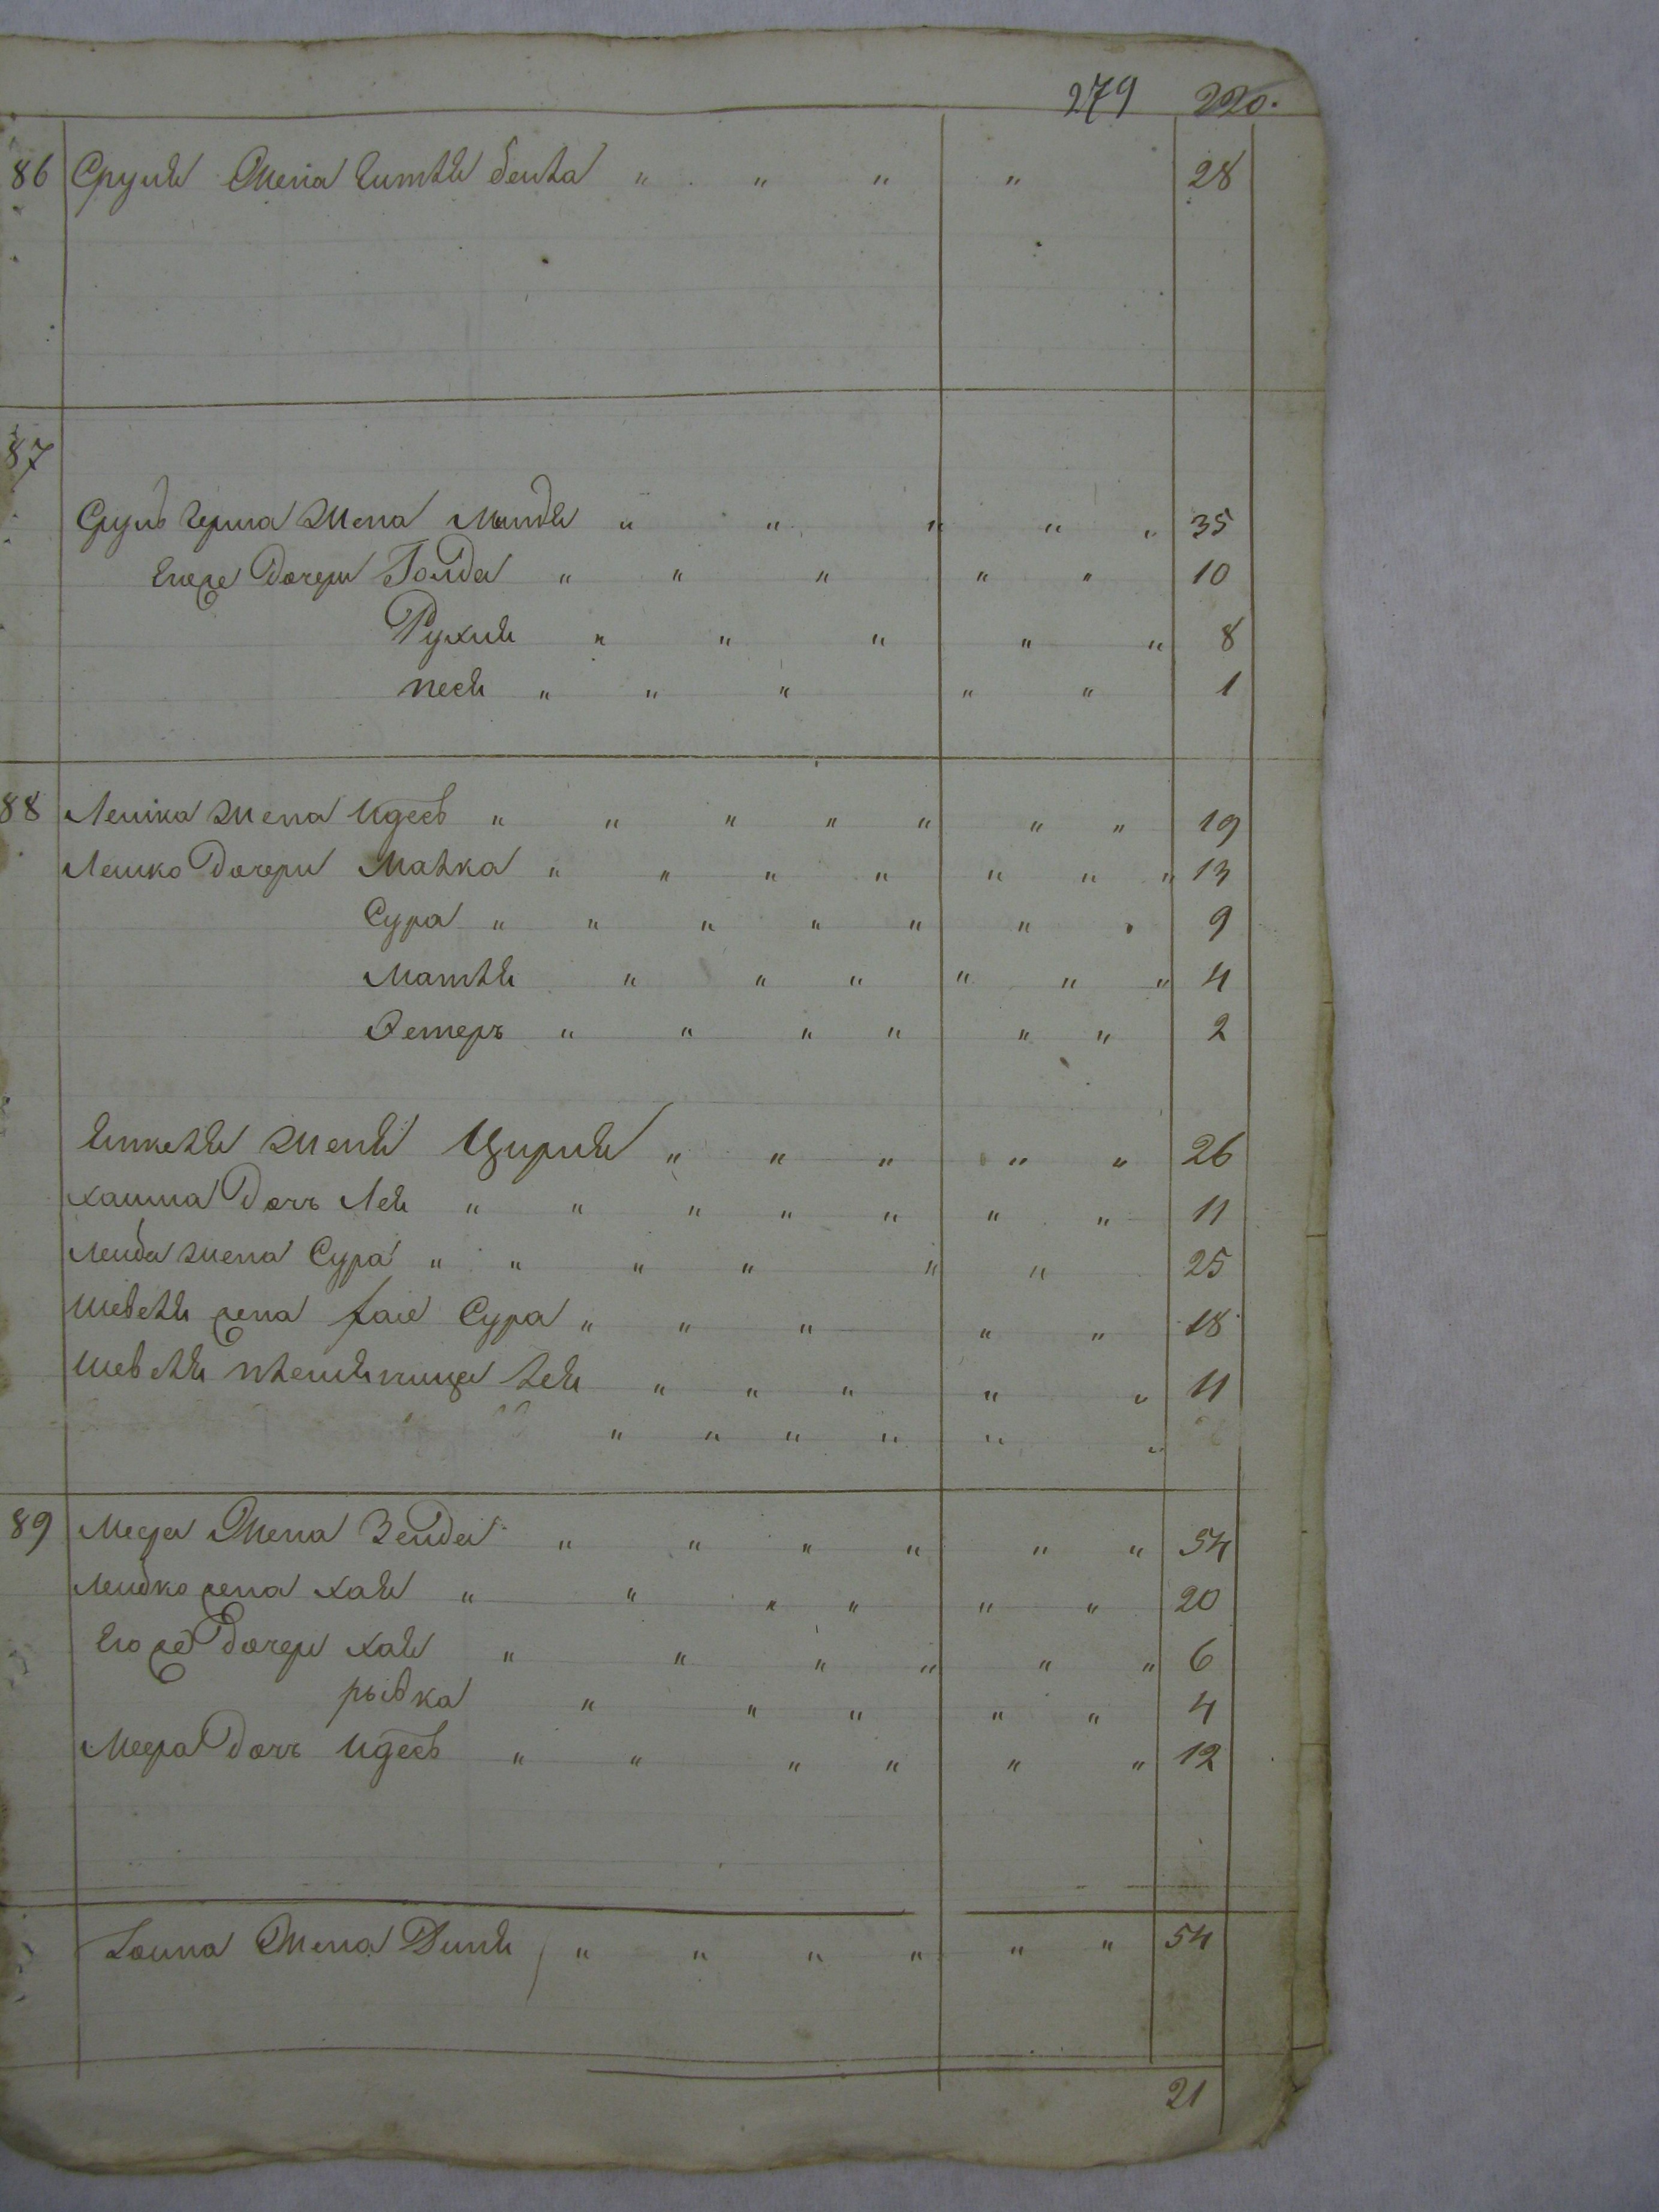 279 220.
86 Сруля Жена Битля бейла " " " " 28
87
Сруль герша Жена Миндя " " " " " 35
Ево же Дочери Голда " " " " " 10
Рухля " " " " " 8
песя " " " " " 1
88 Лейка Жена Идесъ " " " " " " " 19
Лейко Дочери Малка " " " " " " " 13
Сура " " " " " " " 9
Матля " " " " " " 4
Эстеръ " " " " " " 2
Жени Цирля " " " " " 26
Хаима Дочь Лея " " " " " " " 11
лейба жена Сура " " " " " " 25
Шевеля жена хае Сура " " " " " 18
Шевеля племянница лея " " " " " 11
" " " " " "
89 Меера Жена Зелда " " " " " " 54
лейбко жена Хая " " " " " " 20
Ево же Дочери Хая " " " " " " 6
рывка " " " " " 4
Меера Дочь Идесъ " " " " " " 12
Жена Диня " " " " " " 54
21